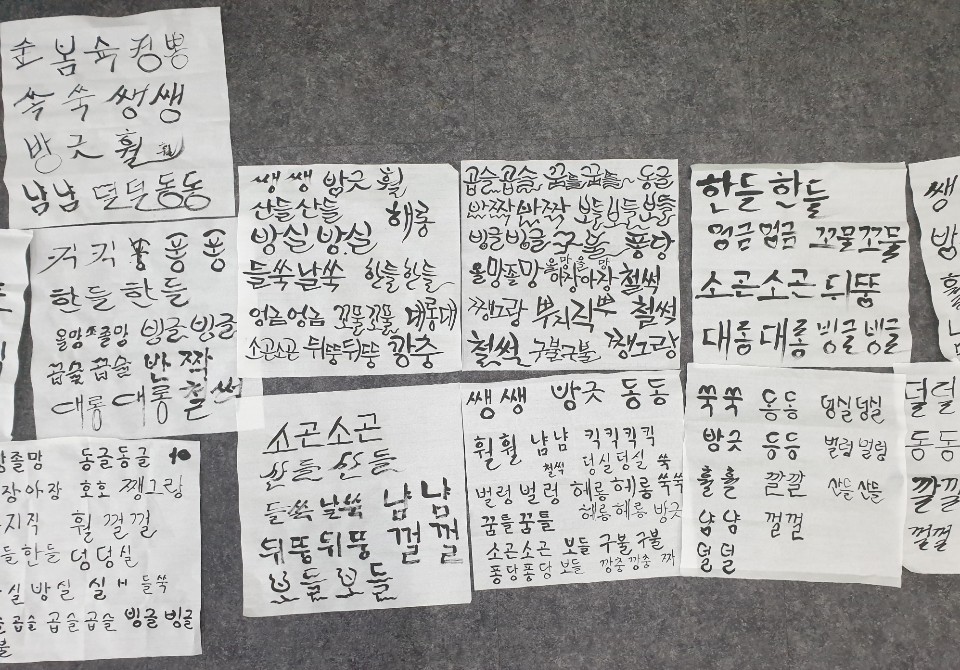 순 봄 슉 킹 뽕
쏙 쑥 쌩 쌩
방긋 훨 훨
냠냠 덜덜 동동
킥 킥 퐁 퐁 퐁
한들 한들
올망쫄망 빙글 빙글
곱슬 곱슬 반짝
대롱 대롱 철썩
쌩 쌩 방긋 훨
산들산들 해롱
방실 방실
들쑥 날쑥 한들한들
엉금엉금 꼬물꼬물 대롱대
소곤소곤 뒤뚱뒤뚱 깡충
곱슬 곱슬 꿈틀꿈틀 동글
반짝 반짝 보들보들보들
빙글 빙글 구불 퐁당
올망졸망 아장아장 철썩
쨍그랑 뿌지직 철썩
철썩 구불구불 쨍그랑
한들 한들
엉금 엉금 꼬물 꼬물
소곤 소곤 뒤뚱
대롱 대롱 빙글 빙글
쌩
방
훨
졸망 동글동글
장아장 호호 쨍그랑
지직 훨 껄껄
들한들 덩덩실
실 방실 실 들쑥
곱슬 곱슬곱슬 빙글 빙글
불
소곤 소곤
산들 산들
들쑥 날쑥 냠 냠
뒤뚱 뒤뚱 껄 껄
보들 보들
쌩 쌩 방긋 동동
훨훨 냠냠 킥킥킥킥
철썩 덩실 덩실 쑥
벌렁 벌렁 헤롱 헤롱 쑥쑥
꿈틀 꿈틀 헤롱 헤롱 방긋
소곤 소곤 보들 구불 구불
퐁당 퐁당 보들 깡충 깡충 짜
쑥쑥 둥둥 덩실 덩실
방긋 둥둥 벌렁 벌렁
훌훌 깔깔 산들 산들
냠냠 껄껄
덜덜
덜덜
동동
깔깔
껄껄